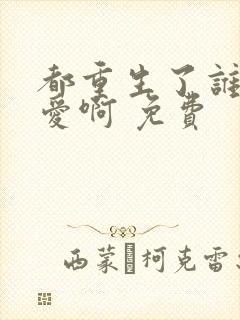 都重生了誰
愛啊 免費
西蒙 柯克雷